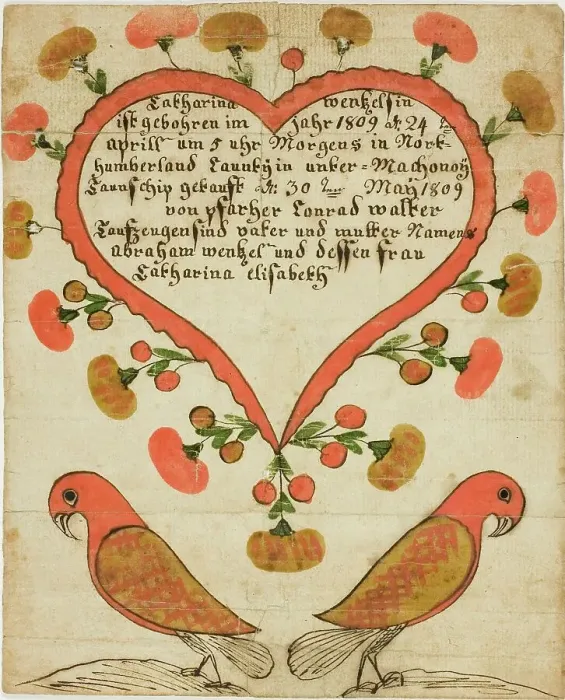 Catharina wentzelsin
ist gebohren im jahr 1809 dn 24 ten
aprill um 5 uhr Morgens in Nort-
humberland Caunty in unter=Machonoÿ
Taunschip getauft dn 30 ten May 1809
von pfarher Conrad walter
Taufzeugen sind vater und mutter Namens
abraham wentzel und dessen frau
Catharina elisabeth